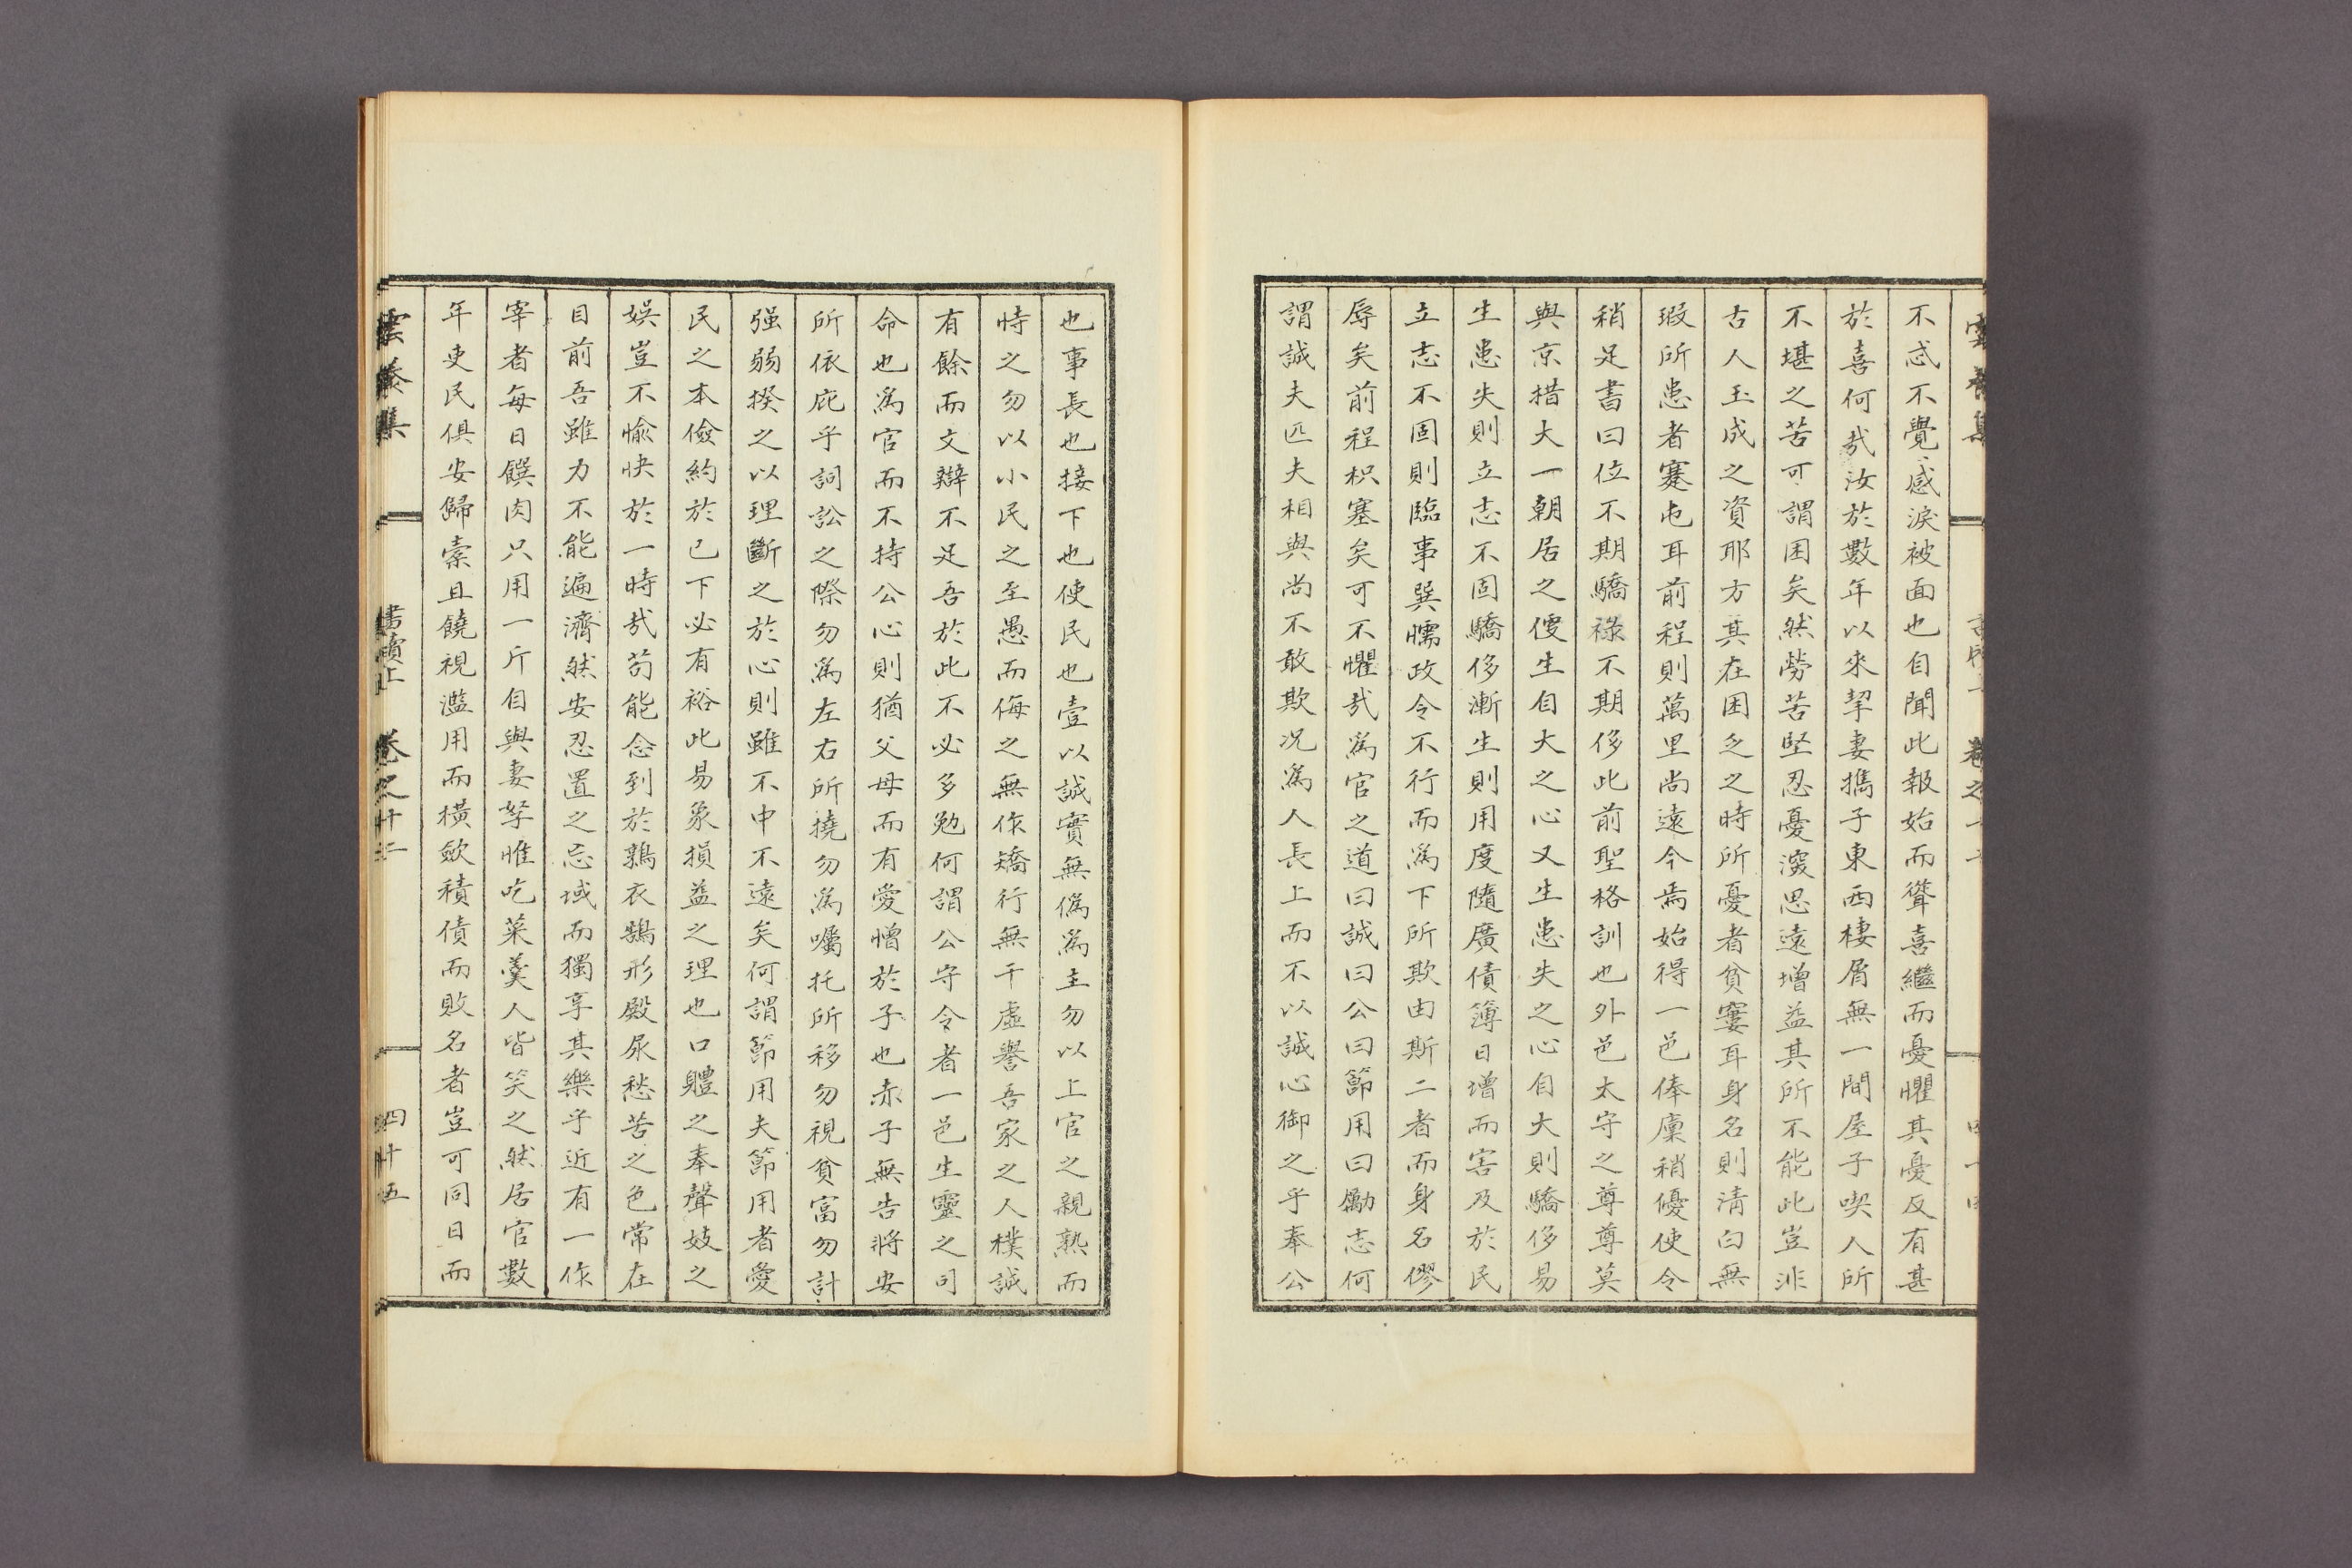 不忒不覺感淚被面也自聞此報始而聳喜繼而憂懼其憂反有甚
於喜何哉汝於數年以來挈妻擕子東西棲屑無一間屋子喫人所
不堪之苦可謂困矣然勞苦堅忍憂深思遠增益其所不能此豈非
古人玉成之資耶方其在困乏之時所憂者貧窶耳身名則淸白無
瑕所患者蹇屯耳前程則萬里尙遠今焉始得一邑俸廩稍優使令
稍足書曰位不期驕祿不期侈此前聖格訓也外邑太守之尊尊莫
與京措大一朝居之便生自大之心又生患失之心自大則驕侈易
生患失則立志不固驕侈漸生則用度隨廣債簿日增而害及於民
立志不固則臨事巽懦政令不行而爲下所欺由斯二者而身名僇
辱矣前程枳塞矣可不懼哉爲官之道曰誠曰公曰節用曰勵志何
謂誠夫匹夫相與尙不敢欺况爲人長上而不以誠心御之乎奉公
也事長也接下也使民也壹以誠實無僞爲主勿以上官之親熟而
恃之勿以小民之至愚而侮之無作矯行無干虛譽吾家之人樸誠
有餘而文辯不足吾於此不必多勉何謂公守令者一邑生靈之司
命也爲官而不持公心則猶父母而有愛憎於子也赤子無告將安
所依庇乎詞訟之際勿爲左右所撓勿爲囑托所移勿視貧富勿計
强弱揆之以理斷之於心則雖不中不遠矣何謂節用夫節用者愛
民之本儉約於己下必有裕此易象損益之理也口軆之奉聲妓之
娛豈不愉快於一時哉苟能念到於鶉衣鵠形殿屎愁苦之色常在
目前吾雖力不能遍濟然安忍置之忘域而獨享其樂乎近有一作
宰者每日饌肉只用一斤自與妻孥惟吃菜羹人皆笑之然居官數
年吏民俱安歸橐且饒視濫用而橫歛積債而敗名者豈可同日而
集 卷之十二 四十五